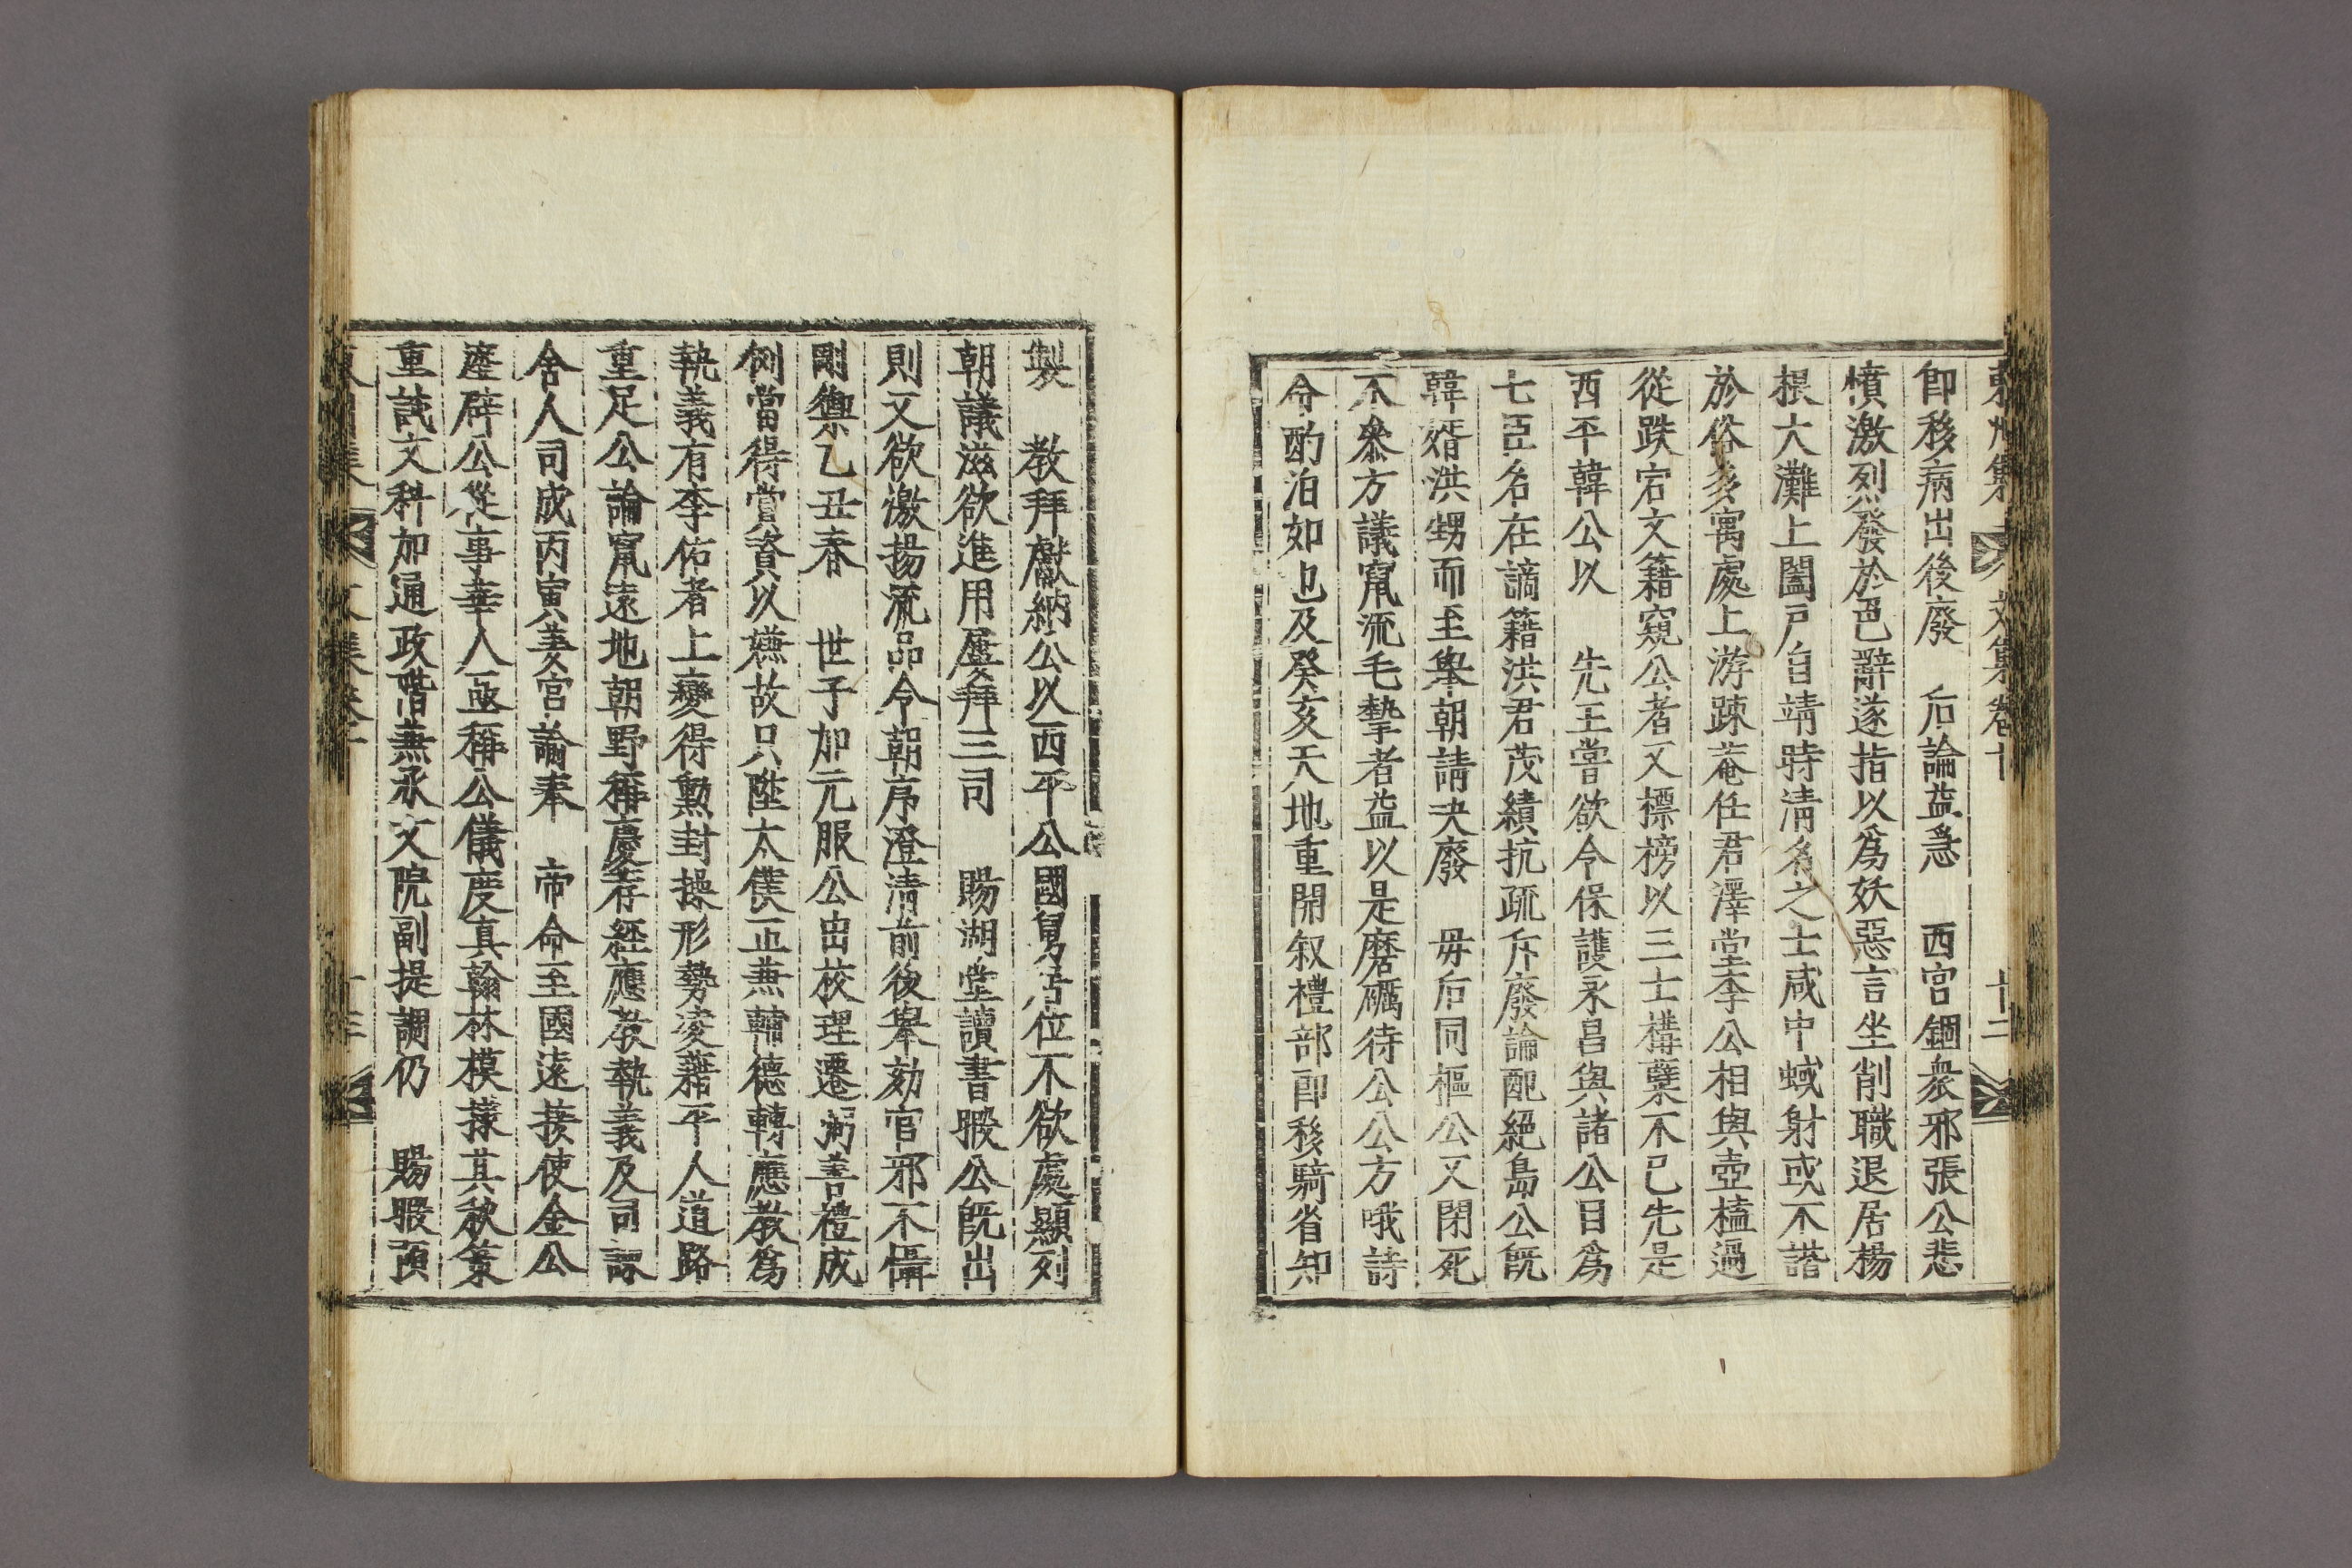 東州集 文集卷十 十二
卽移病出後廢 后論益急 西宮錮衆邪張公悲
憤激烈發於色辭遂指以爲妖惡言坐削職退居楊
根大灘上闔戶自靖時淸名之士咸中蜮射或不諧
於俗多寓處上游踈菴任君澤堂李公相與壺榼過
從跌宕文籍窺公者又標榜以三士構糱不已先是
西平韓公以 先王嘗欲令保護永昌與諸公目爲
七臣名在謫籍洪君茂績抗疏斥廢論配絕島公旣
韓婿洪甥而至擧朝請夬廢 毋后同樞公又閉死
不叅方議竄流毛摯者益以是磨礪待公公方哦詩
命酌泊如也及癸亥天地重開叙禮部卽移騎省知
製 敎拜獻納公以西平公國舅居位不欲處顯列
朝議滋欲進用屢拜三司 賜湖堂讀書暇公旣出
則又欲激揚流品令朝序澄淸前後擧劾官邪不懾
剛禦乙丑春 世子加元服公出校理遷弼善禮成
例當得賞資以嫌故只陞太僕正兼輔德轉應敎爲
執義有李佑者上變得勳封操形勢凌藉平人道路
重足公論竄遠地朝野稱慶存經應敎執義及司諫
舍人司成丙寅妻宮諭奉 帝命至國遠接使金公
瑬辟公從事華人亟稱公儀度眞翰林模㨾其秋策
重試文科加通政階兼承文院副提調仍 賜暇預
文集卷十